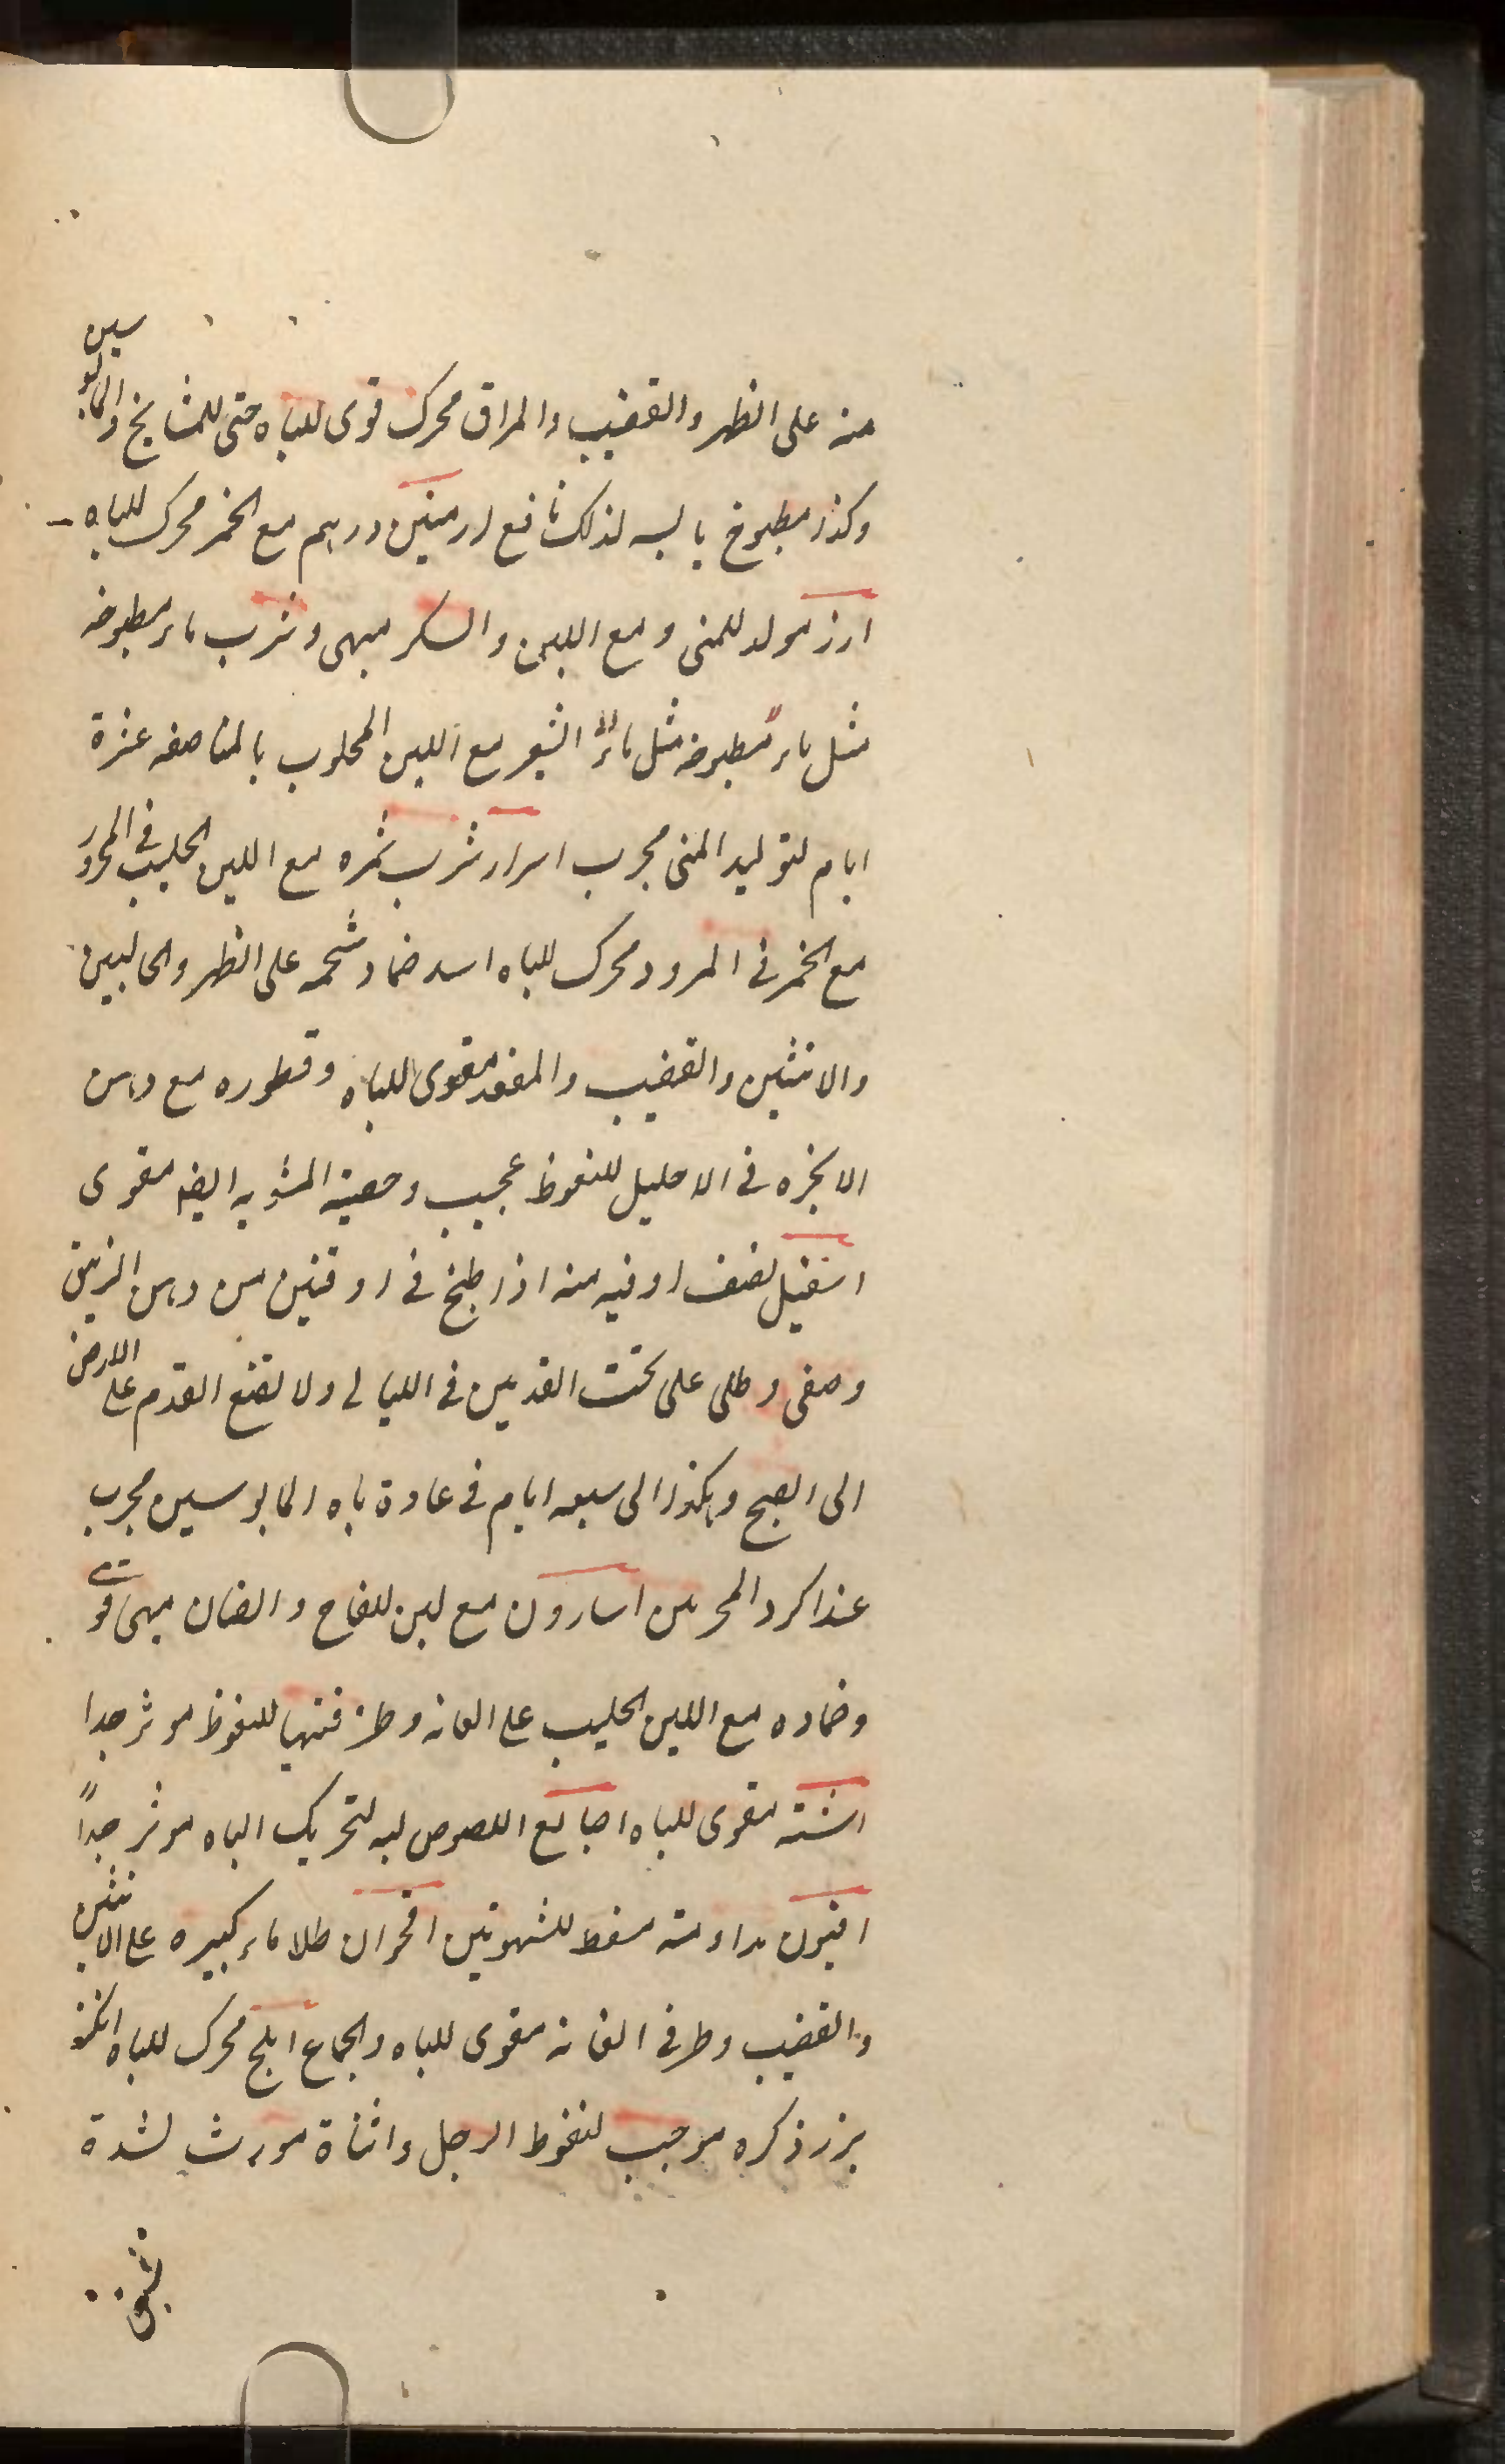 منه على الظهر والقضيب والمراق محرك قوى للباه حتى للمشايخ والمايوسين
وكذا مطبوخ يابسه لذلك نافع ارمنين درهم مع الخمر محرك للباه
ارز مولد للمنى ومع اللبن والسكر مبهى وشرب ماء مطبوخه
مثل ماء مطبوخه مثل ماء الشعير مع اللبن المحلوب بالمناصفه عشرة
ايام لتوليد المنى مجرب اسرار شرب ثمره مع اللبن الحليب فى المحرور
مع الخمر فى المبرود محرك للباه اسد ضماد شحمه على الظهر والحالبين
والانثيين والقضيب والمقعد مقوى للباه وقطوره مع دهن
الانجره فى الاحليل للنعوظ عجيب وخصيته المشويه ايضا مقوى
اسقيل نصف اوقيه منه اذا طبخ فى اوقتين من دهن الزيبق
وصفى وطلى على تحت القدمين فى الليالى ولا تضع القدم على الارض
الى الصبح وهكذا الى سبعه ايام فى عادة باه المايوسين مجرب
عند اكرد المحرمين اسارون مع لبن اللقاح والضان مبهى قوى
وضماده مع اللبن الحليب على العانه وطرفيها للنعوظ موثر جدا
اشنه مقوى للباه اصابع اللصوص لبه لتحريك الباه موثر جداً
افيون مداومته مسقط للشهوتين اقحوان طلا ماء كبيره على الانثيين
والقضيب وطرفى العانه مقوى للباه والجماع املج محرك للباه
بزر ذكره موجب لنعوظ الرجل وانثاه مورث لشدة
شبق